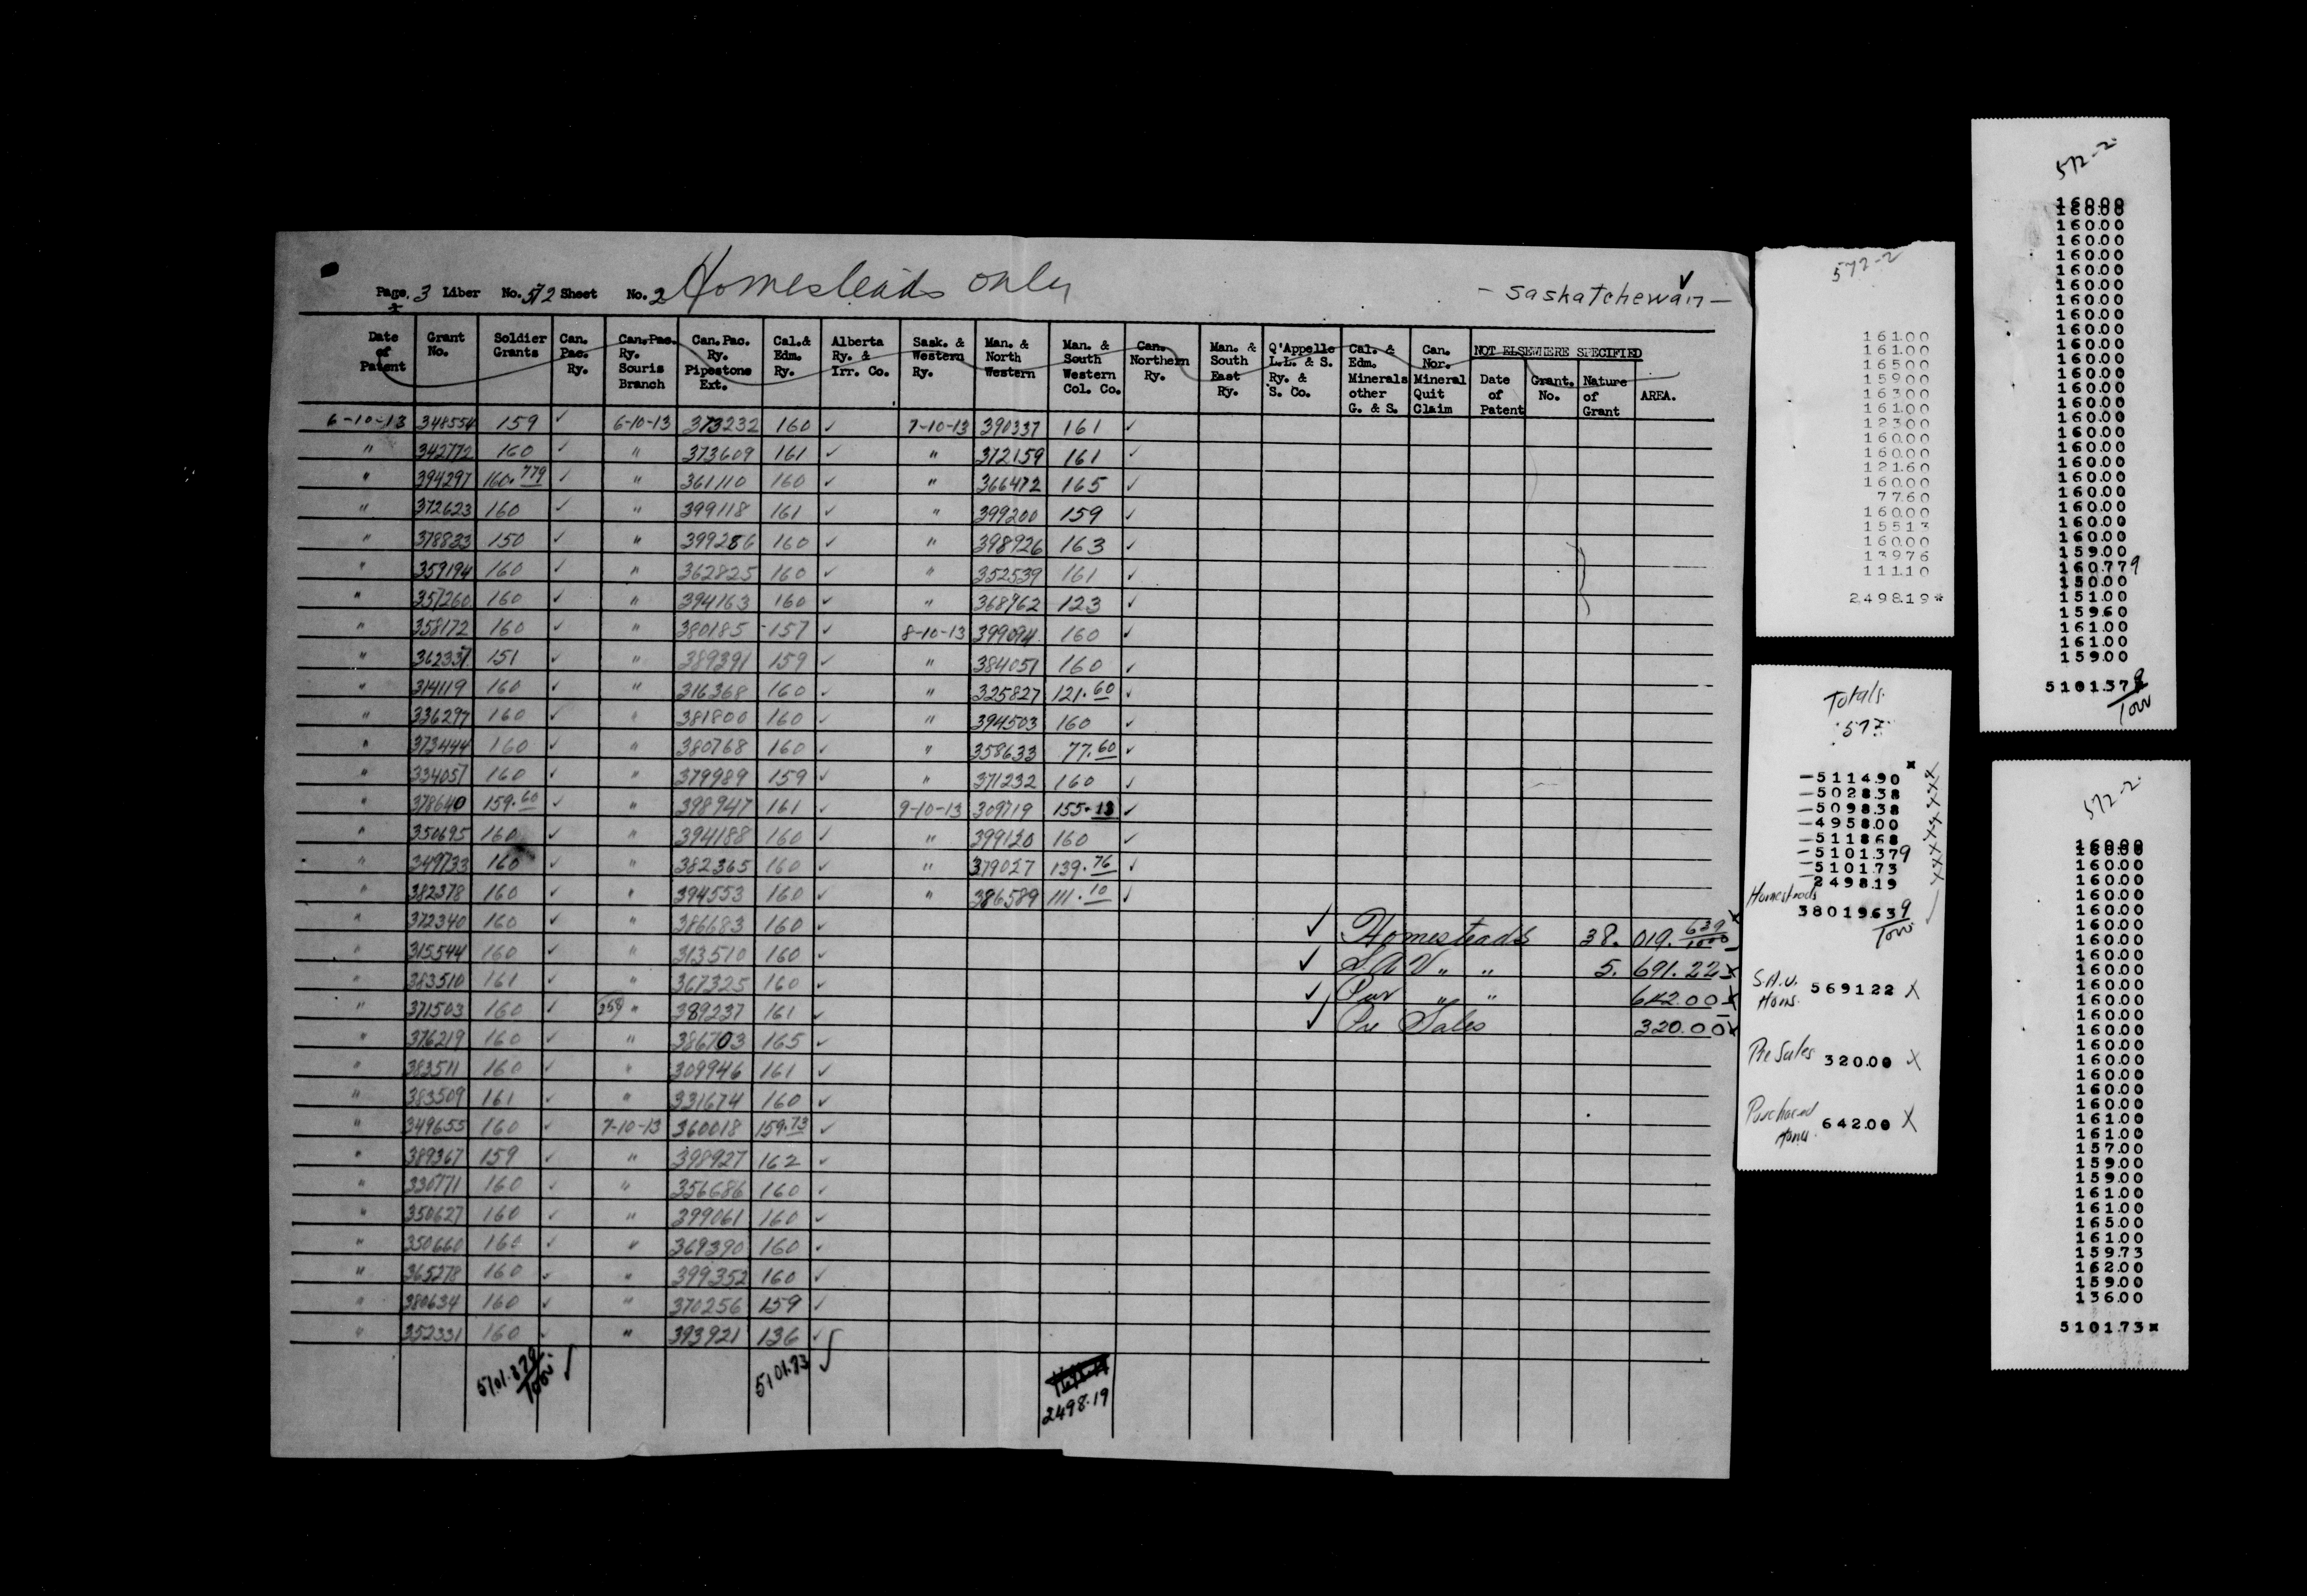 Homesteads only
Page. 3 Liber No. 572 Sheet No. 2
- Saskatchewan -
Date of Patent | Grant No. | Soldier Grants | Can. Pac. Ry. | Can. Pac. Ry. Souris Branch | Can. Pac. Ry. Pipestone Ext. | Cal. & Edm. Ry. | Alberta Ry. & Irr. Co. | Sask. & Western Ry. | Man. & North Western | Man. & South Western Col. Co. | Can. Northern Ry. | Man. & South East Ry. | Q'Appelle L.L. & S. Ry. & S. Co. | Cal. & Edm. Minerals other G. & S. | Can. Nor. Mineral Quit Claim | NOT ELSEWHERE SPECIFIED | Date of Patent | Grant. No. | Nature of Grant | AREA.
6-10-13 348554 159 ✓ 6-10-13 373232 160 ✓ 7-10-13 390337 161 ✓
" 342772 160 ✓ " 373609 161 ✓ " 372159 161 ✓
" 394297 160.779 ✓ " 361110 160 ✓ " 366472 165 ✓
" 372623 160 ✓ " 399118 161 ✓ " 399200 159 ✓
" 378833 150 ✓ " 399286 160 ✓ " 398926 163 ✓
" 359194 160 ✓ " 362825 160 ✓ " 352539 161 ✓
" 357260 160 ✓ " 394163 160 ✓ " 368962 123 ✓
" 358172 160 ✓ " 380185 157 ✓ 8-10-13 399094 160 ✓
" 362337 151 ✓ " 389391 159 ✓ " 384051 160 ✓
" 314119 160 ✓ " 316368 160 ✓ " 325827 121.60 ✓
" 336297 160 ✓ " 381800 160 ✓ " 394503 160 ✓
" 373444 160 ✓ " 380768 160 ✓ " 358633 77.60 ✓
" 334057 160 ✓ " 379989 159 ✓ " 371232 160 ✓
" 378640 159.60 ✓ " 398947 161 ✓ 9-10-13 309719 155.13 ✓
" 350695 160 ✓ " 394188 160 ✓ " 399120 160 ✓
" 349733 160 ✓ " 382365 160 ✓ " 379027 139.76 ✓
" 382378 160 ✓ " 394553 160 ✓ " 386589 111.10 ✓
" 372340 160 ✓ " 386683 160 ✓
" 315544 160 ✓ " 313510 160 ✓
" 383510 161 ✓ " 367325 160 ✓
" 371503 160 ✓ " 389237 161 ✓
" 376219 160 ✓ " 386703 165 ✓
" 383511 160 ✓ " 309946 161 ✓
" 383509 161 ✓ " 331674 160 ✓
" 349655 160 ✓ 7-10-13 360018 159.73 ✓
" 389367 159 ✓ " 398927 162 ✓
" 330771 160 ✓ " 356686 160 ✓
" 350627 160 ✓ " 399061 160 ✓
" 350660 160 ✓ " 369390 160 ✓
" 365278 160 ✓ " 399352 160 ✓
" 380634 160 ✓ " 370256 159 ✓
" 352331 160 ✓ " 393921 136 ✓
5101.379/1000 ✓ 5101.73 ✓ 2498.19
✓ Homesteads 38. 019. 639/1000 x
✓ S.A.V " " 5. 691.22 x
✓ Pur " " 642.00 x
✓ Pre Sales 320.00 x
572-2
161.00
161.00
165.00
159.00
163.00
161.00
123.00
160.00
160.00
121.60
160.00
77.60
160.00
155.13
160.00
139.76
111.10
2498.19*
Totals.
572
-5114.90
-5028.38
-5098.38
-4958.00
-5118.68
-5101.379
-5101.73
2498.19
Homesteads
38019639/1000
S.A.V. Homs. 5691.22 X
Pre Sales 320.00 X
Purchased Homs. 642.00 X
572-2
160.00
160.00
160.00
160.00
160.00
160.00
160.00
160.00
160.00
160.00
160.00
160.00
160.00
160.00
160.00
160.00
160.00
160.00
160.00
160.00
160.00
160.00
160.00
160.00
159.00
160.779
150.00
151.00
159.60
161.00
161.00
159.00
5101.379/1000
572-2
160.00
160.00
160.00
160.00
160.00
160.00
160.00
160.00
160.00
160.00
160.00
160.00
160.00
160.00
160.00
160.00
160.00
160.00
161.00
161.00
157.00
159.00
159.00
161.00
161.00
165.00
161.00
159.73
162.00
159.00
136.00
5101.73*